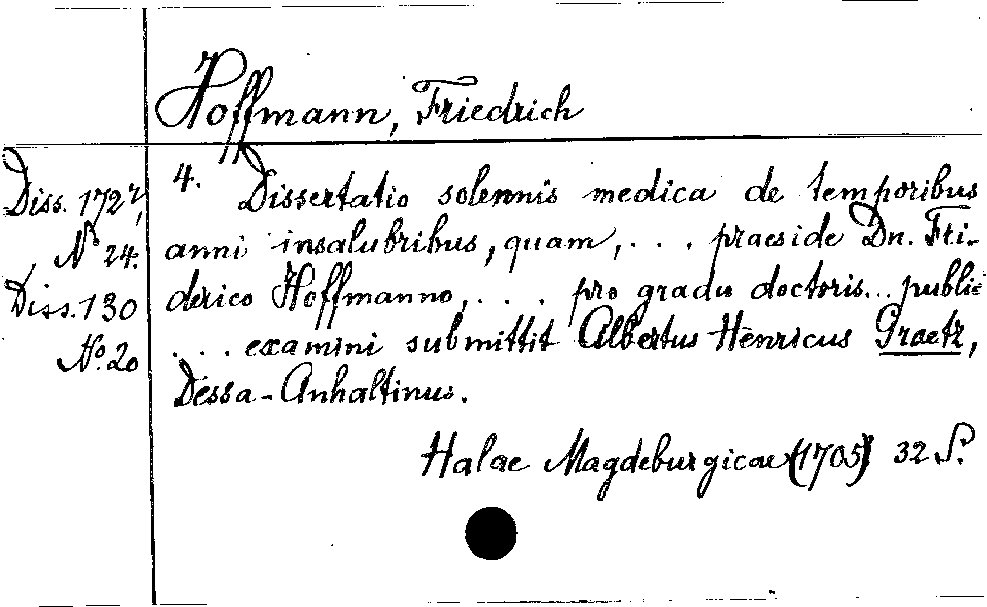 Hoffmann, Friedrich
Diss. 1727,
N° 24.
Diss. 130
No. 20
4. Dissertatio solennis medica de temporibus
anni insalubribus, quam, . . . praeside Dn. Fri-
derico Hoffmanno, . . . pro gradu doctoris... public
. . . examini submittit Albertus Henricus Graetz,
Dessa-Anhaltinus.
Halae Magdeburgicae (1705) 32 S.